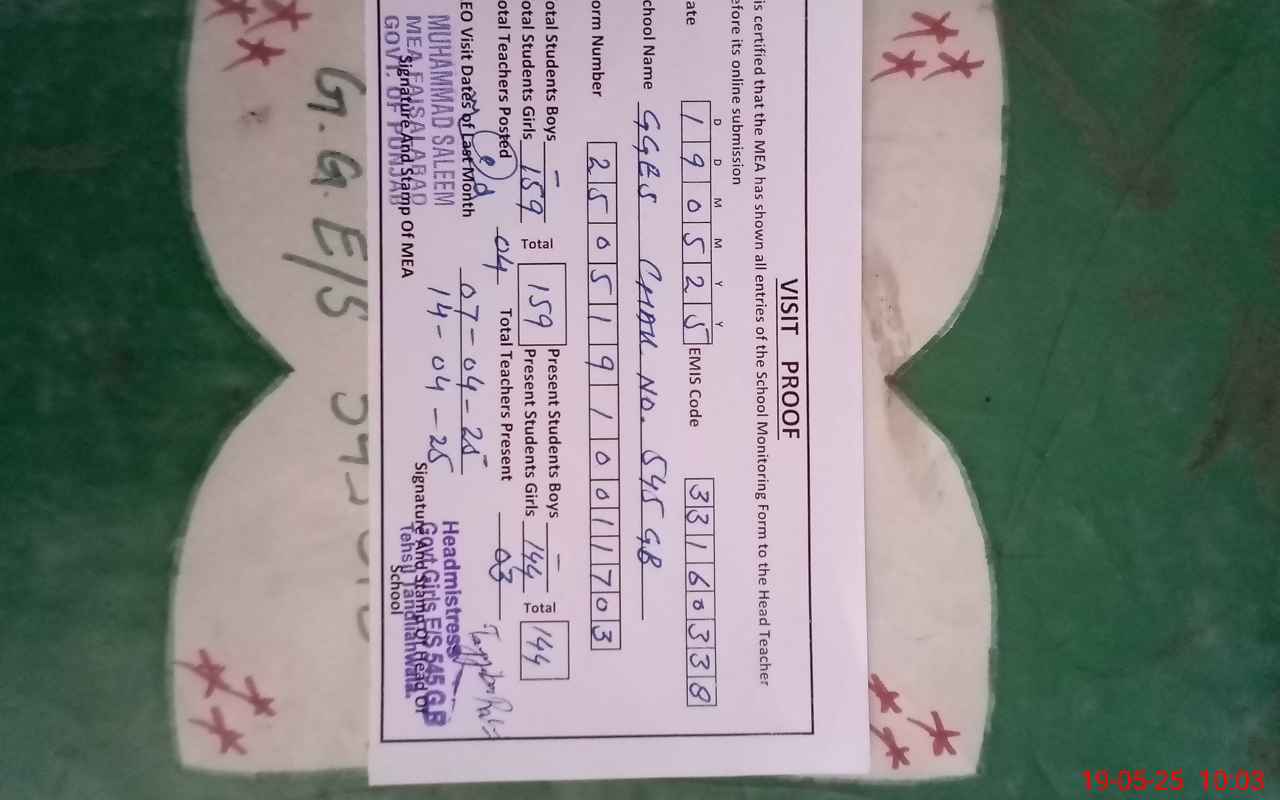 VISIT PROOF
is certified that the MEA has shown all entries of the School Monitoring Form to the Head Teacher
efore its online submission
D D M M Y Y
ate 190525 EMIS Code 33160338
chool Name GGES CHAK NO. 545 GB
orm Number 2505191001703
otal Students Boys - Present Students Boys -
otal Students Girls 159 Total 159 Present Students Girls 144 Total 144
otal Teachers Posted 04 Total Teachers Present 03
EO Visit Dates of Last Month 07-04-25
14-04-25
MUHAMMAD SALEEM
MEA FAISALABAD
GOVT. OF PUNJAB
Signature And Stamp Of MEA
Headmistress
Govt Girls E/S 545 G.B
Tehsil Tandlianwala.
Signature And Stamp of Head Of
School
G.G.E/S
19-05-25 10:03